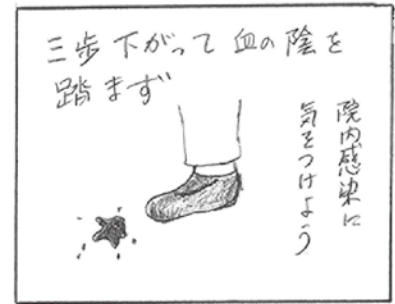 三歩下がって血の陰を
踏まず
院内感染に
気をつけよう